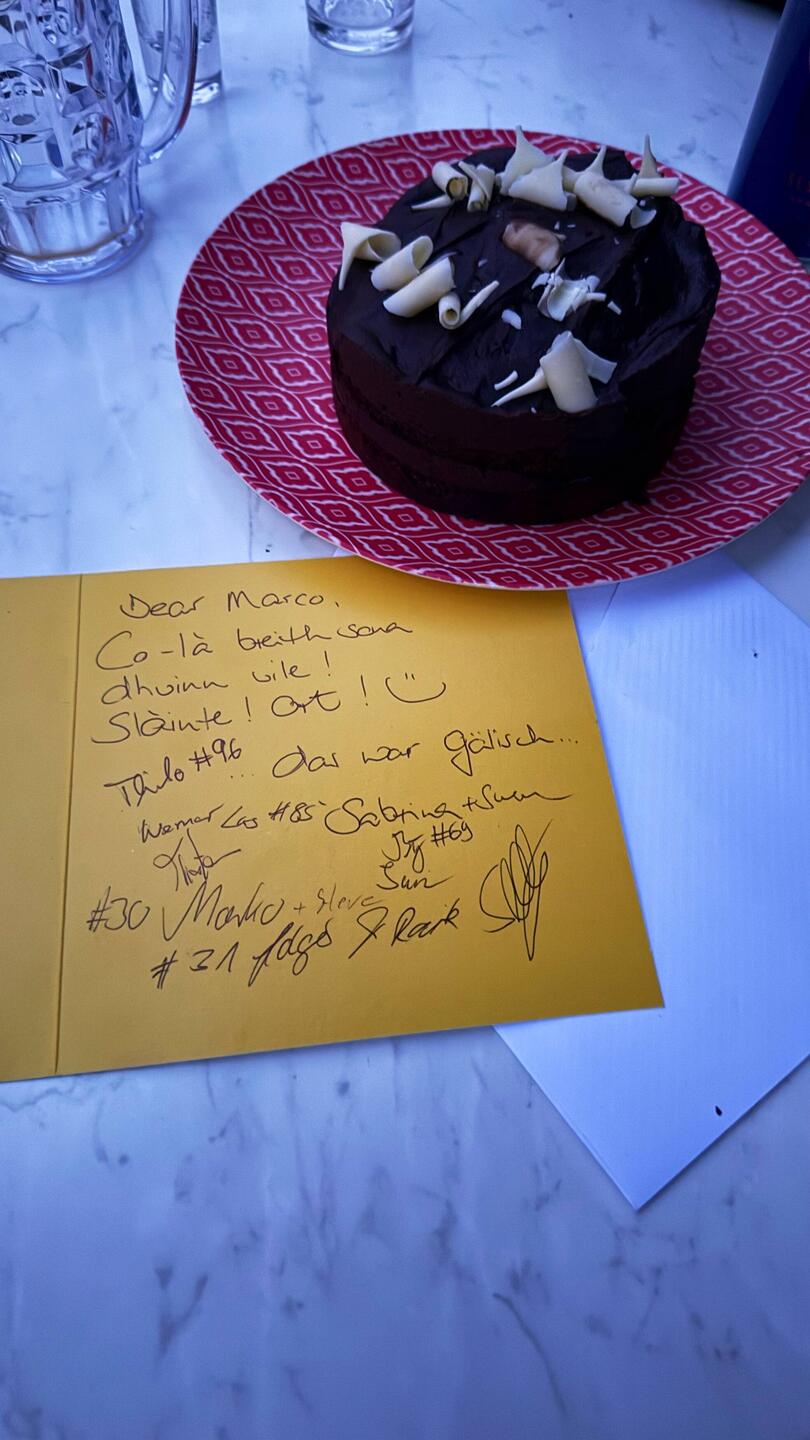 Dear Marco,
Co-là breith sona
dhuinn uile!
Slàinte! Ort!
Thilo #96
... das war Gälisch...
Werner #85 Sabrina + Swen
#69
#30 Marko + Steve
#31 & Raik